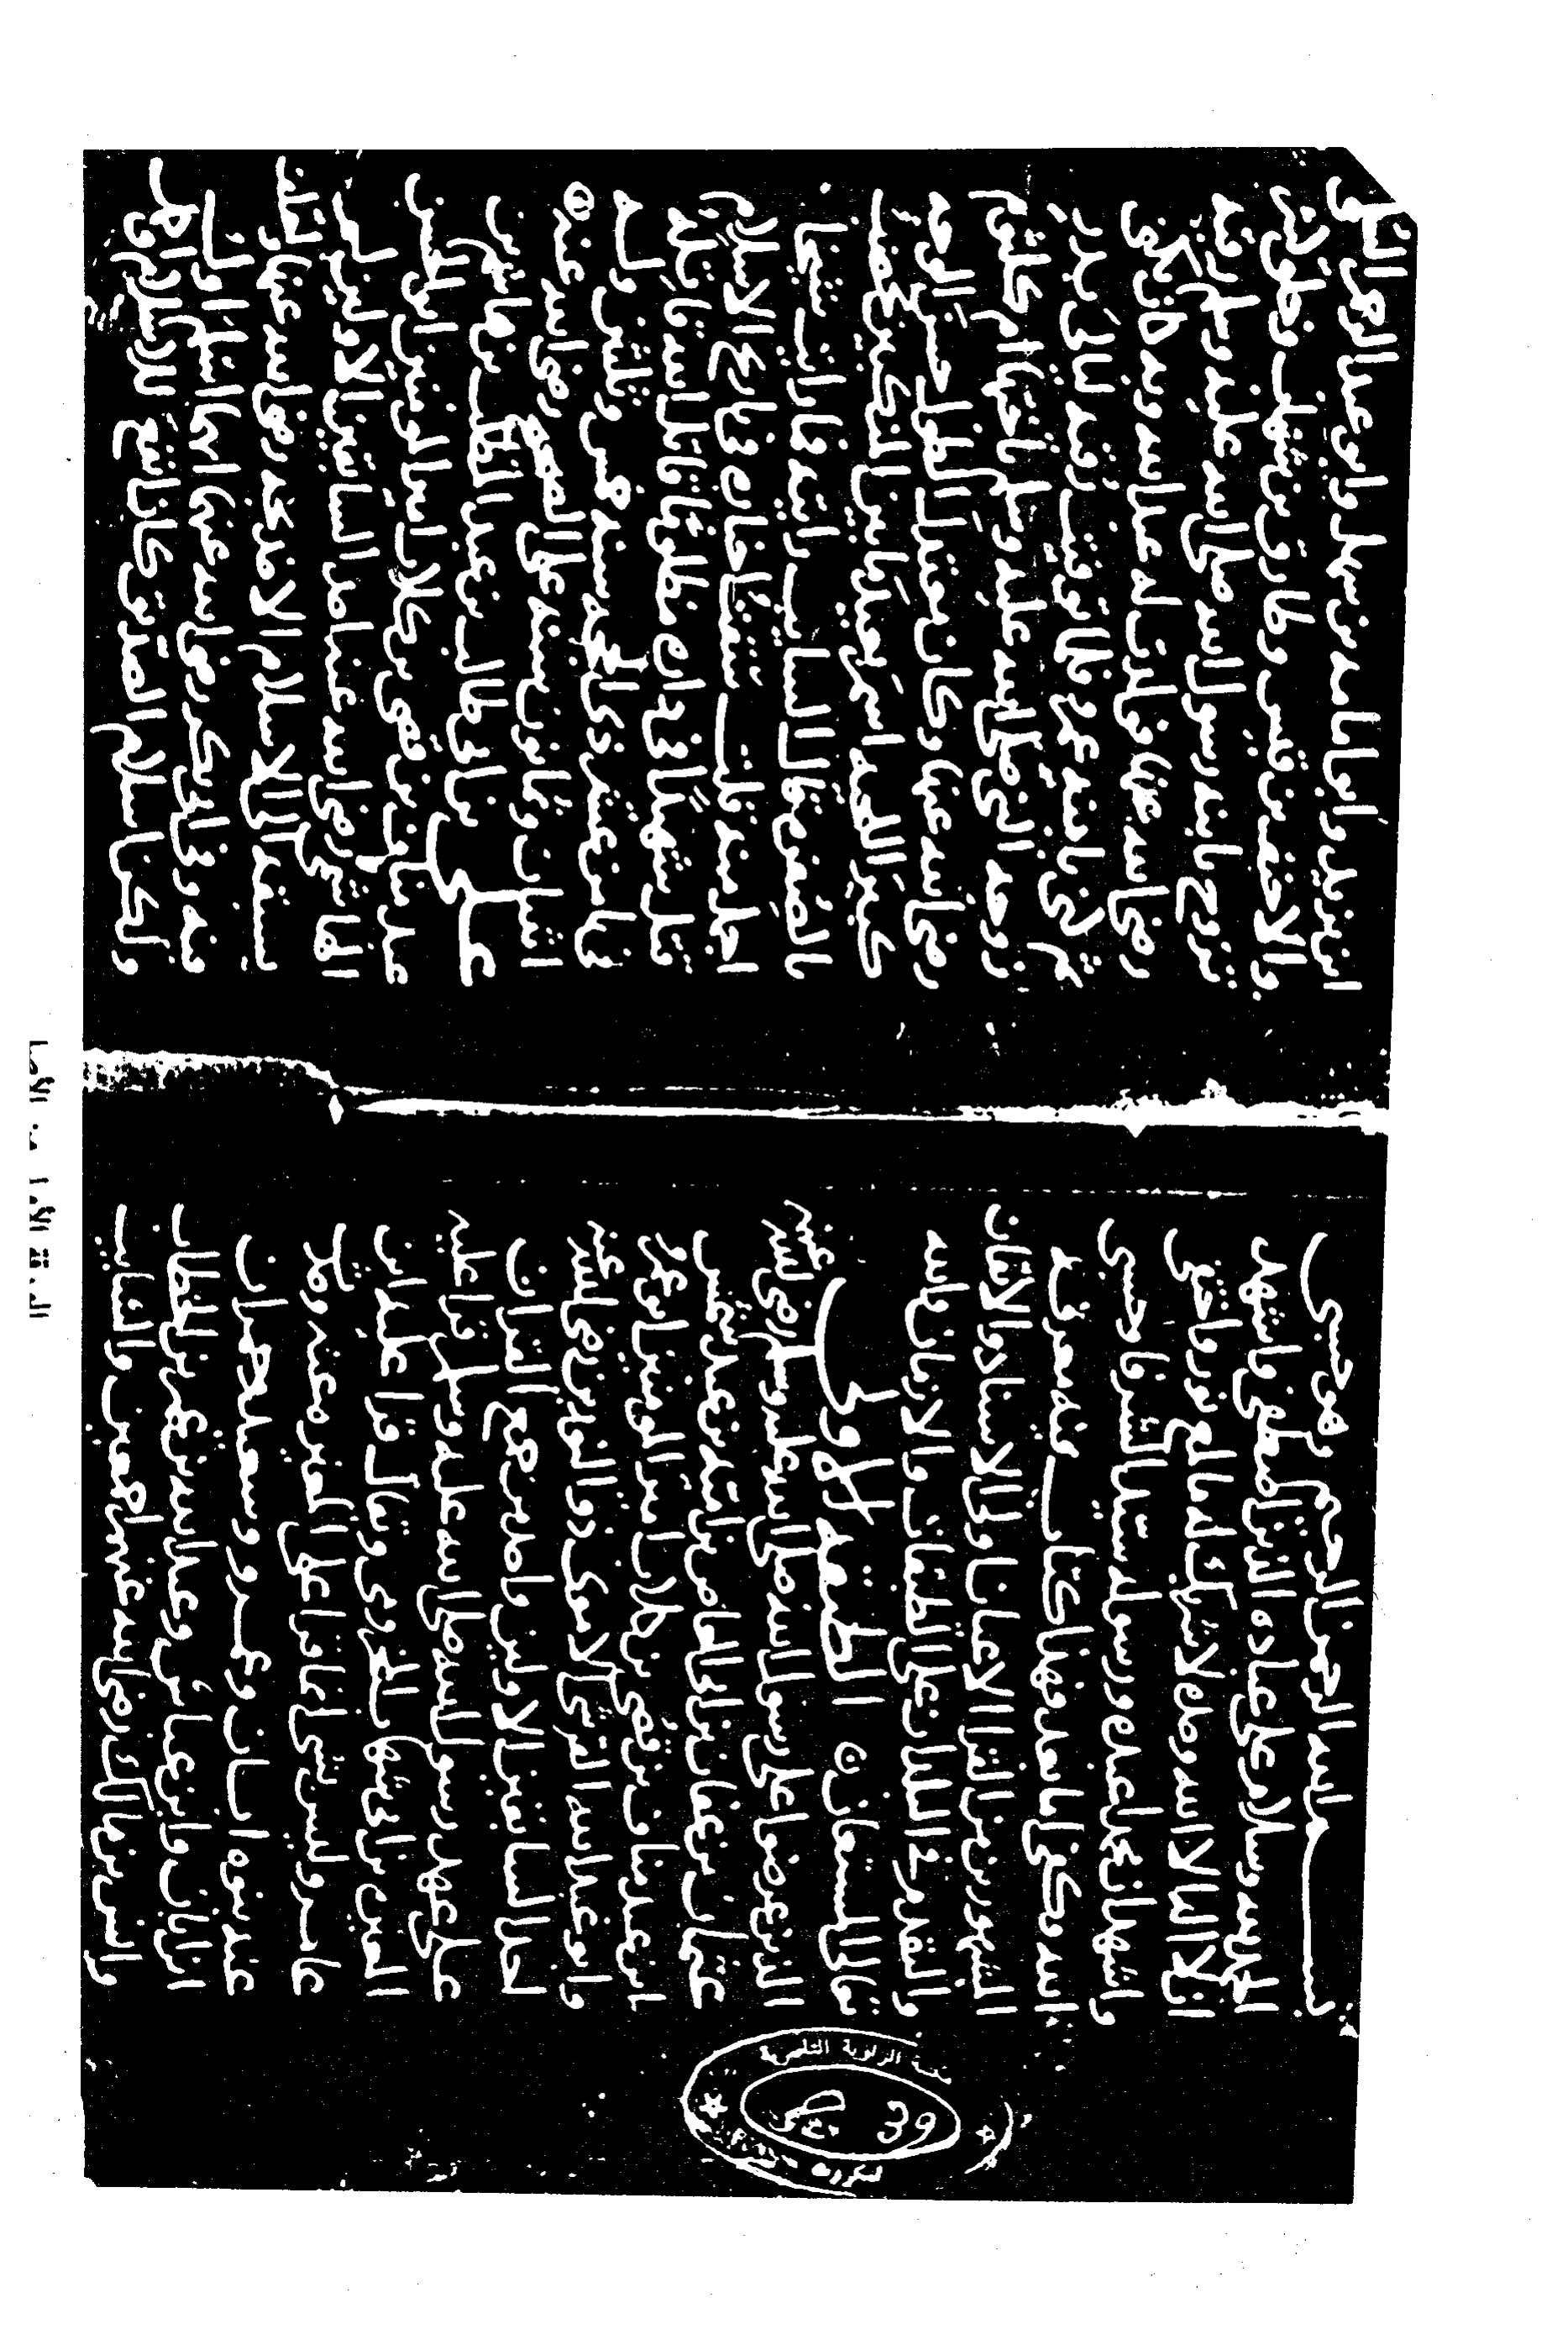 بسم الله الرحمن الرحيم وهو حسبي
الحمد لله وسلام على عباده الذين اصطفى واشهد
ان لا اله الا الله وحده لا شريك له
واشهد ان محمدا عبده ورسوله
المشهورين من القراء الاعيان اولي الاسناد والاتقان
والتقدم في البلدان على الطبقات والازمان والله
تعالى المستعان
الطبقة الاولى
الذين عرضوا على رسول الله صلى الله عليه وسلم رضي الله عنهم
عثمان بن عفان بن ابي العاص بن امية بن عبد شمس
ابن عبد مناف بن قصي بن كلاب امير المؤمنين ابو عمرو
وابو عبد الله القرشي الاموي ذو النورين رضي الله عنه
احد السابقين الاولين واحد من جمع القران
على عهد رسول الله صلى الله عليه وسلم قرا عليه
المغيرة بن ابي شهاب المخزومي ويقال قرا عليه ابن
عامر وليس بشيء انما قرا على المغيرة عنه وحدث
عنه بنوه ابان وعمرو وسعيد وحمران
ابن ابان وابن عباس وعبد الله بن عمر بن الخطاب
وانس بن مالك رضي الله عنهم اجمعين والسائب
ابن يزيد وابو امامة بن سهل وابو عبد الرحمن
والاحنف بن قيس وطارق بن شهاب وخلق كثير
تزوج بابنة رسول الله صلى الله عليه وسلم رقية
رضي الله عنها فولدت له عبد الله وبه كان يكنى
ثم كني بابنه عمرو فلما توفيت رقية ليالي بدر
زوجه النبي صلى الله عليه وسلم باختها ام كلثوم
رضي الله عنها وكان معتدل الطول حسن الوجه
كبير اللحية اسمر بعيد ما بين المنكبين يخضب
بالصفرة قال السائب رايته فما رايت شيخا
اجمل منه قلت في تاريخ الاسلام
قتل شهيدا في داره مظلوما قاتل الله قاتليه
في ثامن عشر ذي الحجة سنة خمس وثلثين وله
اثنان وثمانون سنة على الصحيح رضي الله عنه
علي بن ابي طالب بن عبد المطلب بن هاشم بن
عبد مناف بن قصي بن كلاب امير المؤمنين ابو الحسن
الهاشمي رضي الله عنه احد السابقين الاولين لم
يسبقه الى الاسلام الا خديجة رضي الله عنها واختلف
فيه وفي ابي بكر رضي الله عنهما ايهما اسلم اول
ولكن اسلام الصديق كان انفع للاسلام واظهر
الزاوية
39